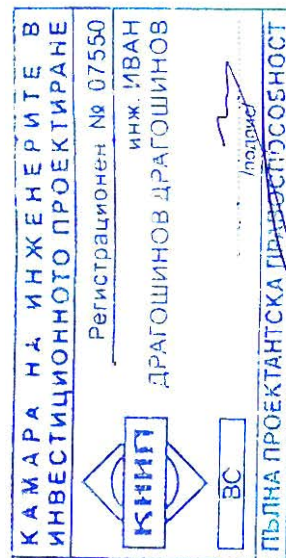 КАМАРА НА ИНЖЕНЕРИТЕ В
ИНВЕСТИЦИОННОТО ПРОЕКТИРАНЕ
Регистрационен № 07550
инж. ИВАН
ДРАГОШИНОВ ДРАГОШИНОВ
КИИП
ВС
/подпис/
ПЪЛНА ПРОЕКТАНТСКА ПРАВОСПОСОБНОСТ